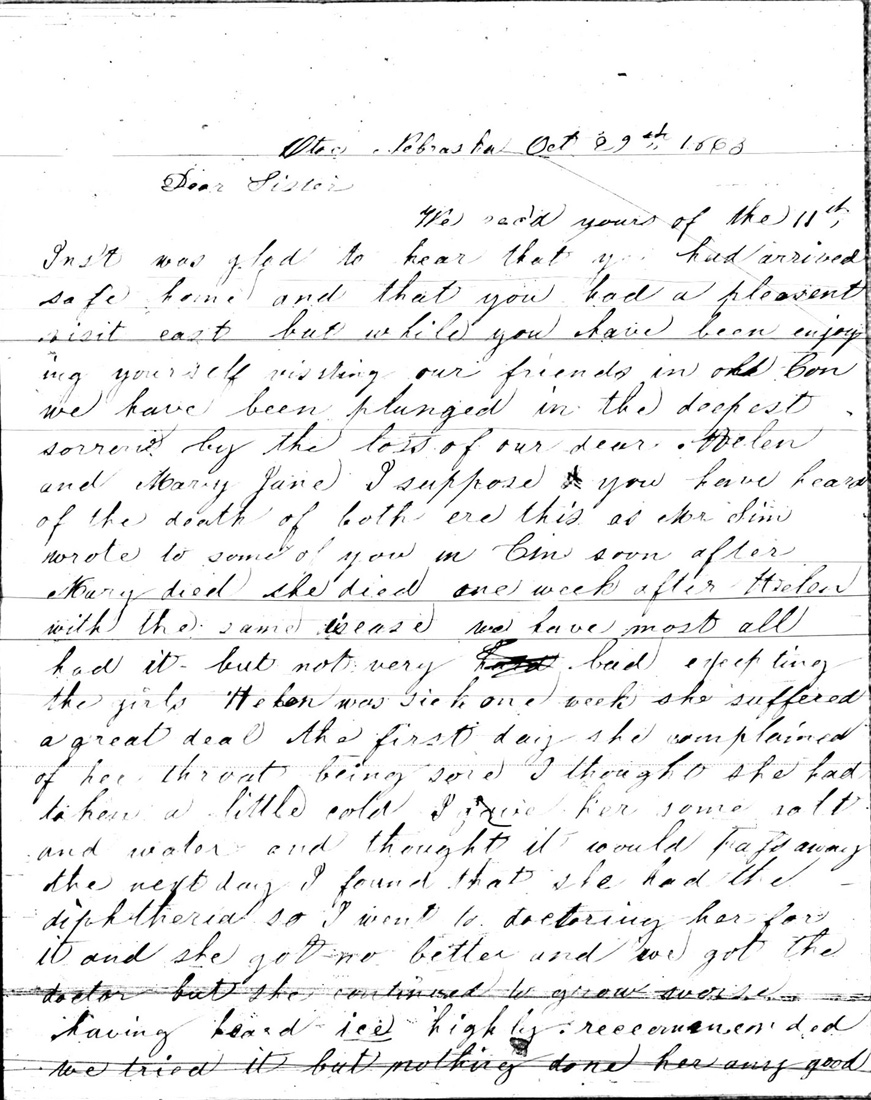 Otoe Nebraska Oct 29th, 1863
Dear Sister
We rec'd yours of the 11th,
Inst was glad to hear that you had arrived
safe home and that you had a pleasent
visit east but while you have been enjoy
ing yourself visiting our friends in old Con
we have been plunged in the deepest
sorrow by the loss of our dear Helen
and Mary Jane I suppose you have heard
of the death of both ere this as Mr Sim
wrote to some of you in Cin soon after
Mary died she died one week after Helen
with the same disease we have most all
had it but not very bad excepting
the girls Helen was sick one week she suffered
a great deal the first day she complained
of her throat being sore I thought she had
taken a little cold I gave her some salt
and water and thought it would pass away
the next day I found that she had the
diphtheria so I went to doctoring her for
it and she got no better and we got the
doctor but she continued to grow worse
having heard ice highly reccomenonded
we tried it but nothing done her any good